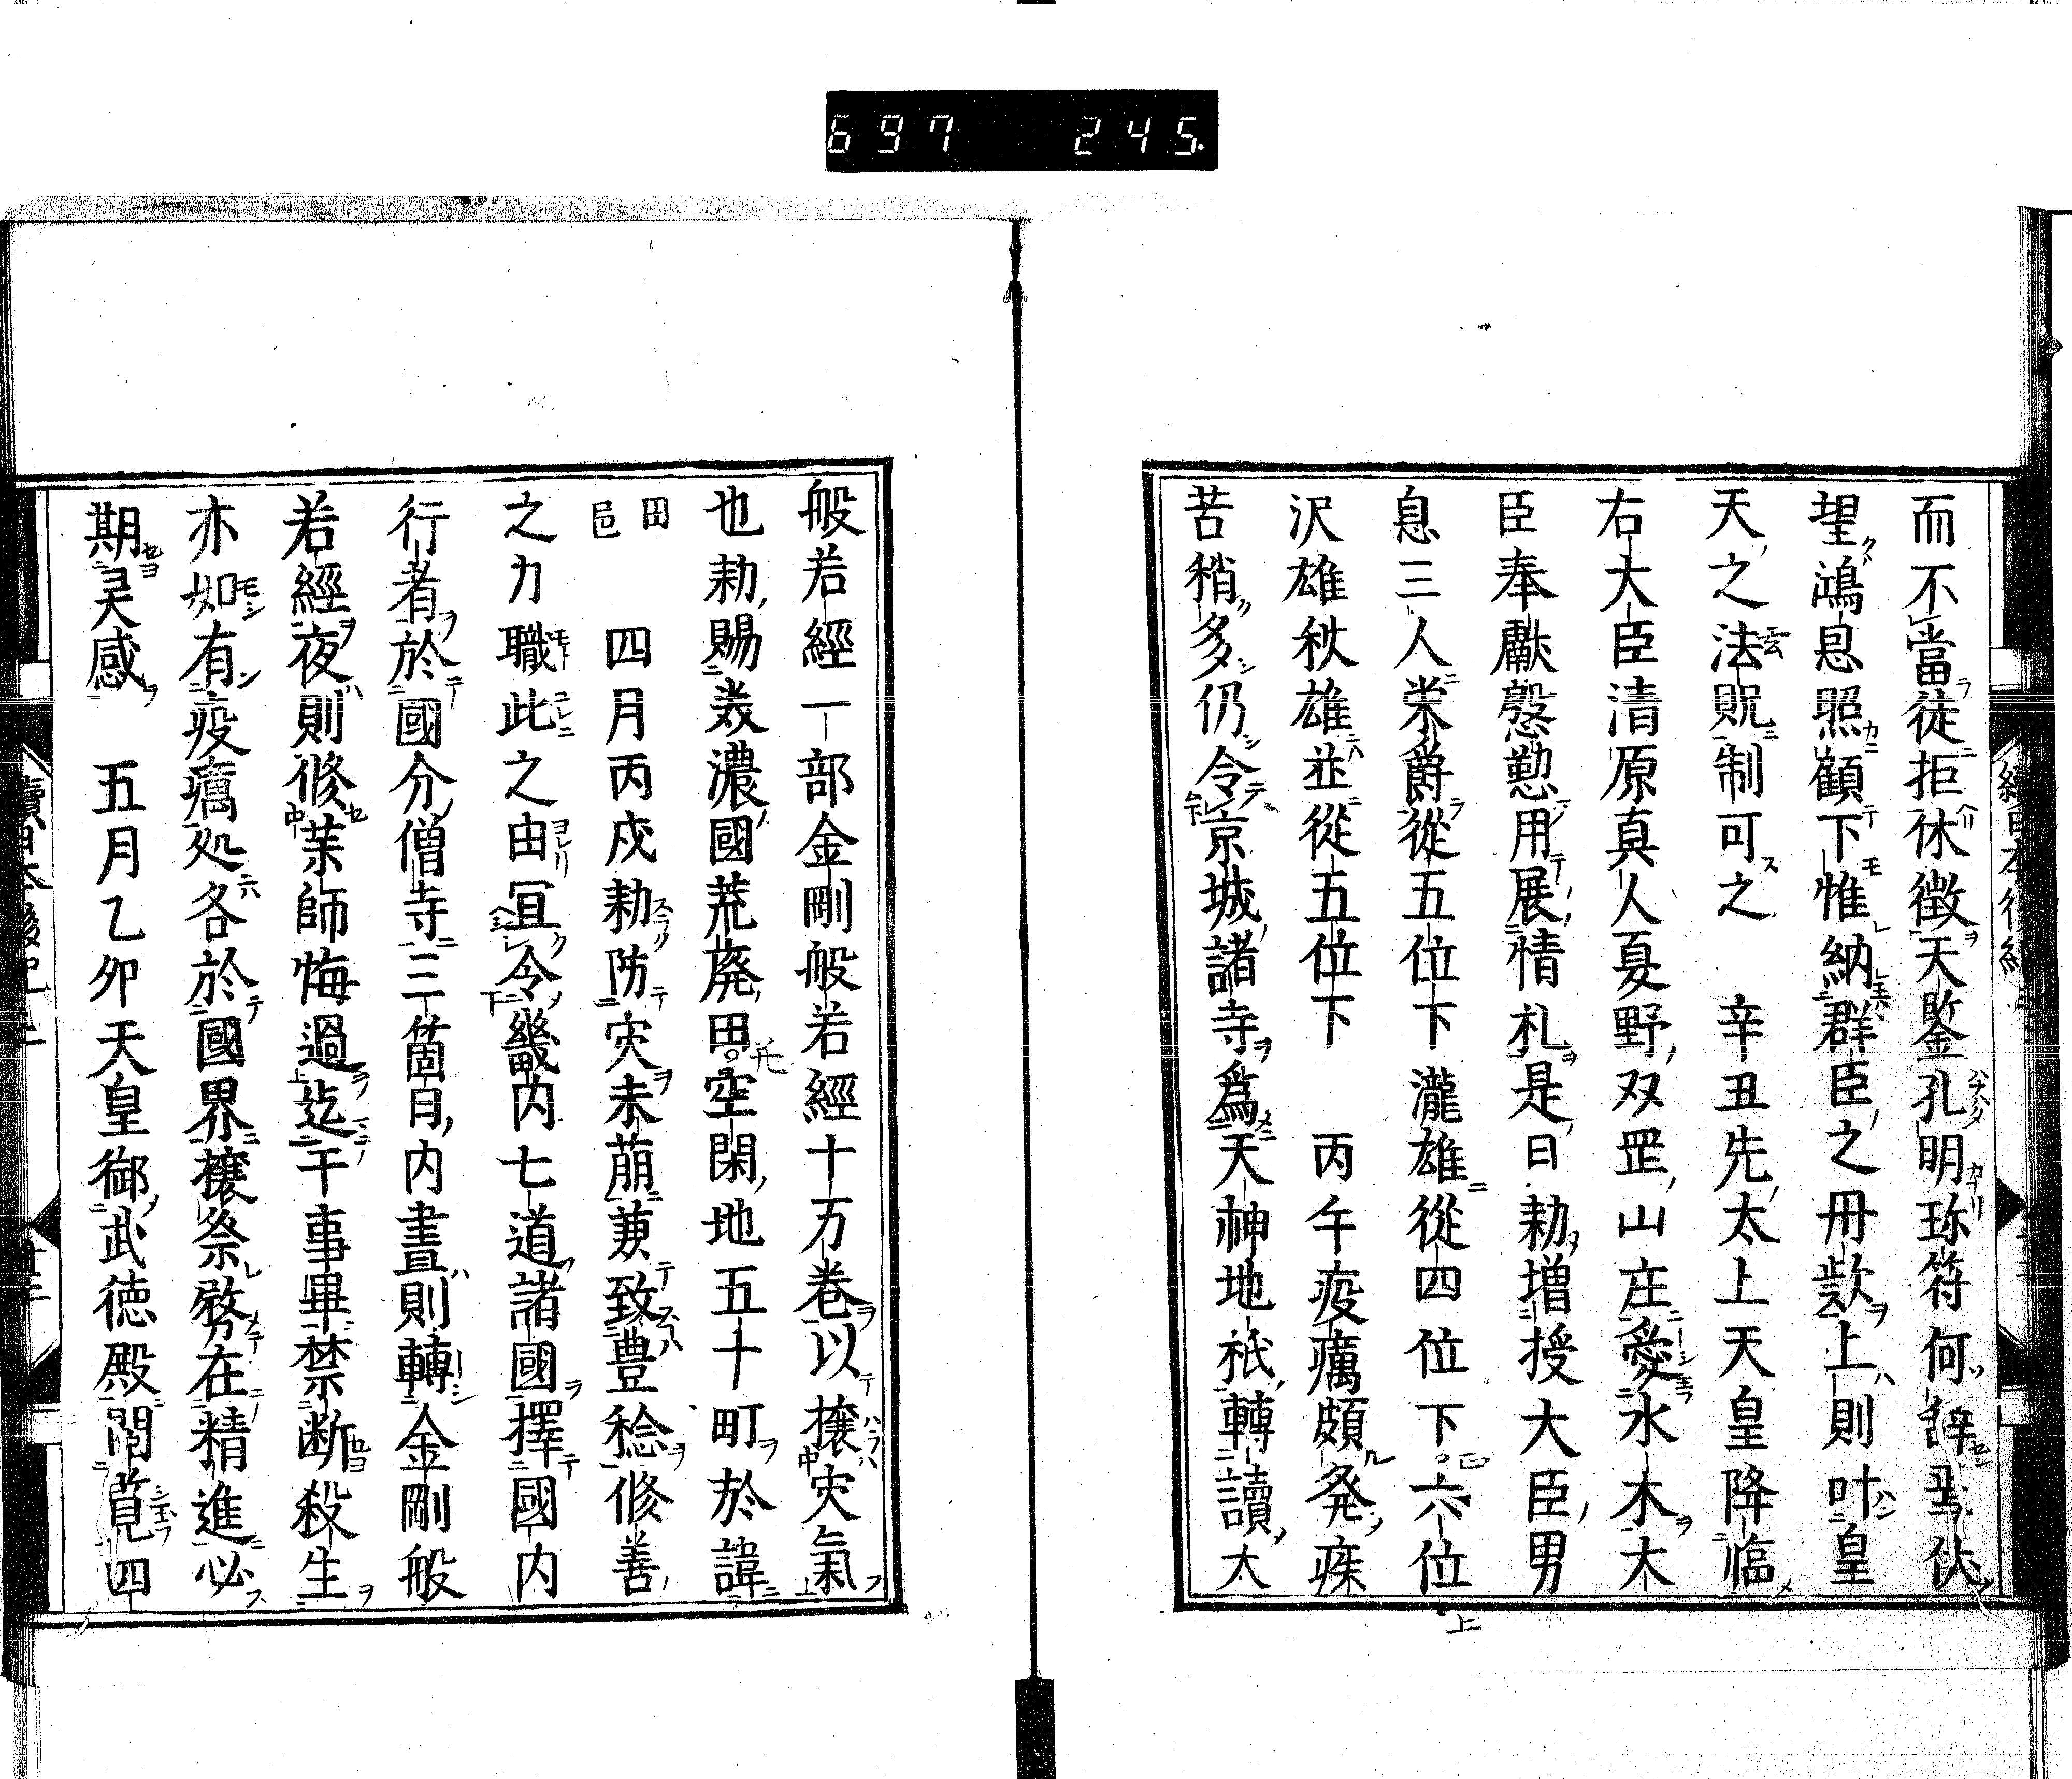 697 245.
而不當徒拒休徴天鑒孔明珎符何辭斗伏
望鴻息照顧下惟納群臣之冊欵上則叶皇
天之法貺制可之　辛丑先太上天皇降臨
右大臣清原真人夏野双罡山庄愛水木大
臣奉獻慇懃用展情札是日勅増授大臣男
息三人榮爵從五位下瀧雄從四位下六位
沢雄秋雄並從五位下　丙午疫癘頗発疾
苦稍多仍令京城諸寺爲天神地祇轉讀大
般若經一部金剛般若經十万巻以攘灾氣
也勅賜美濃國荒廃田空閑地五十町於諱
田邑　四月丙戌勅防灾未萠兼致豊稔修善
之力職此之由冝令畿内七道諸國擇國内
行者於國分僧寺三箇日内晝則轉金剛般
若經夜則修藥師悔過迄于事畢禁断殺生
亦如有疫癘処各於國界攘祭務在精進必
期㚑感　五月乙夘天皇御武徳殿閲覧四